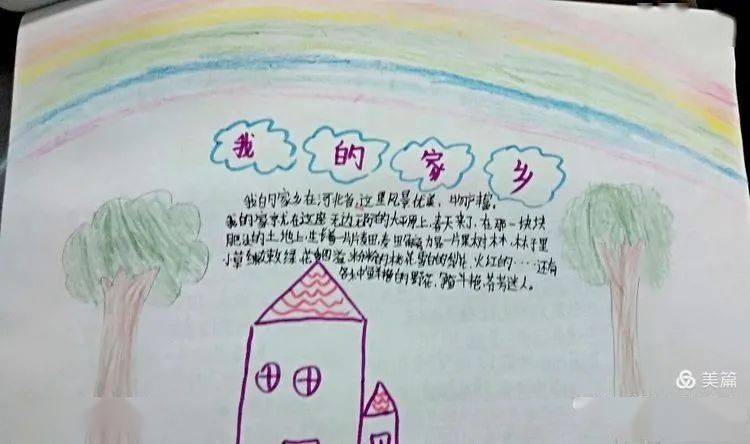 我的家乡
我的家乡在河北省,这里风景优美,物产
我的家就在这座无边无际的大平原上,春天来了,在那一块块
肥沃的土地上,生长着一片片麦田,麦田旁 为是一片果树木木,林子里
小草绿 粉粉的桃花 雪白的梨花,火红的……还有
各 中 的野花, 芬芳迷人。
美篇